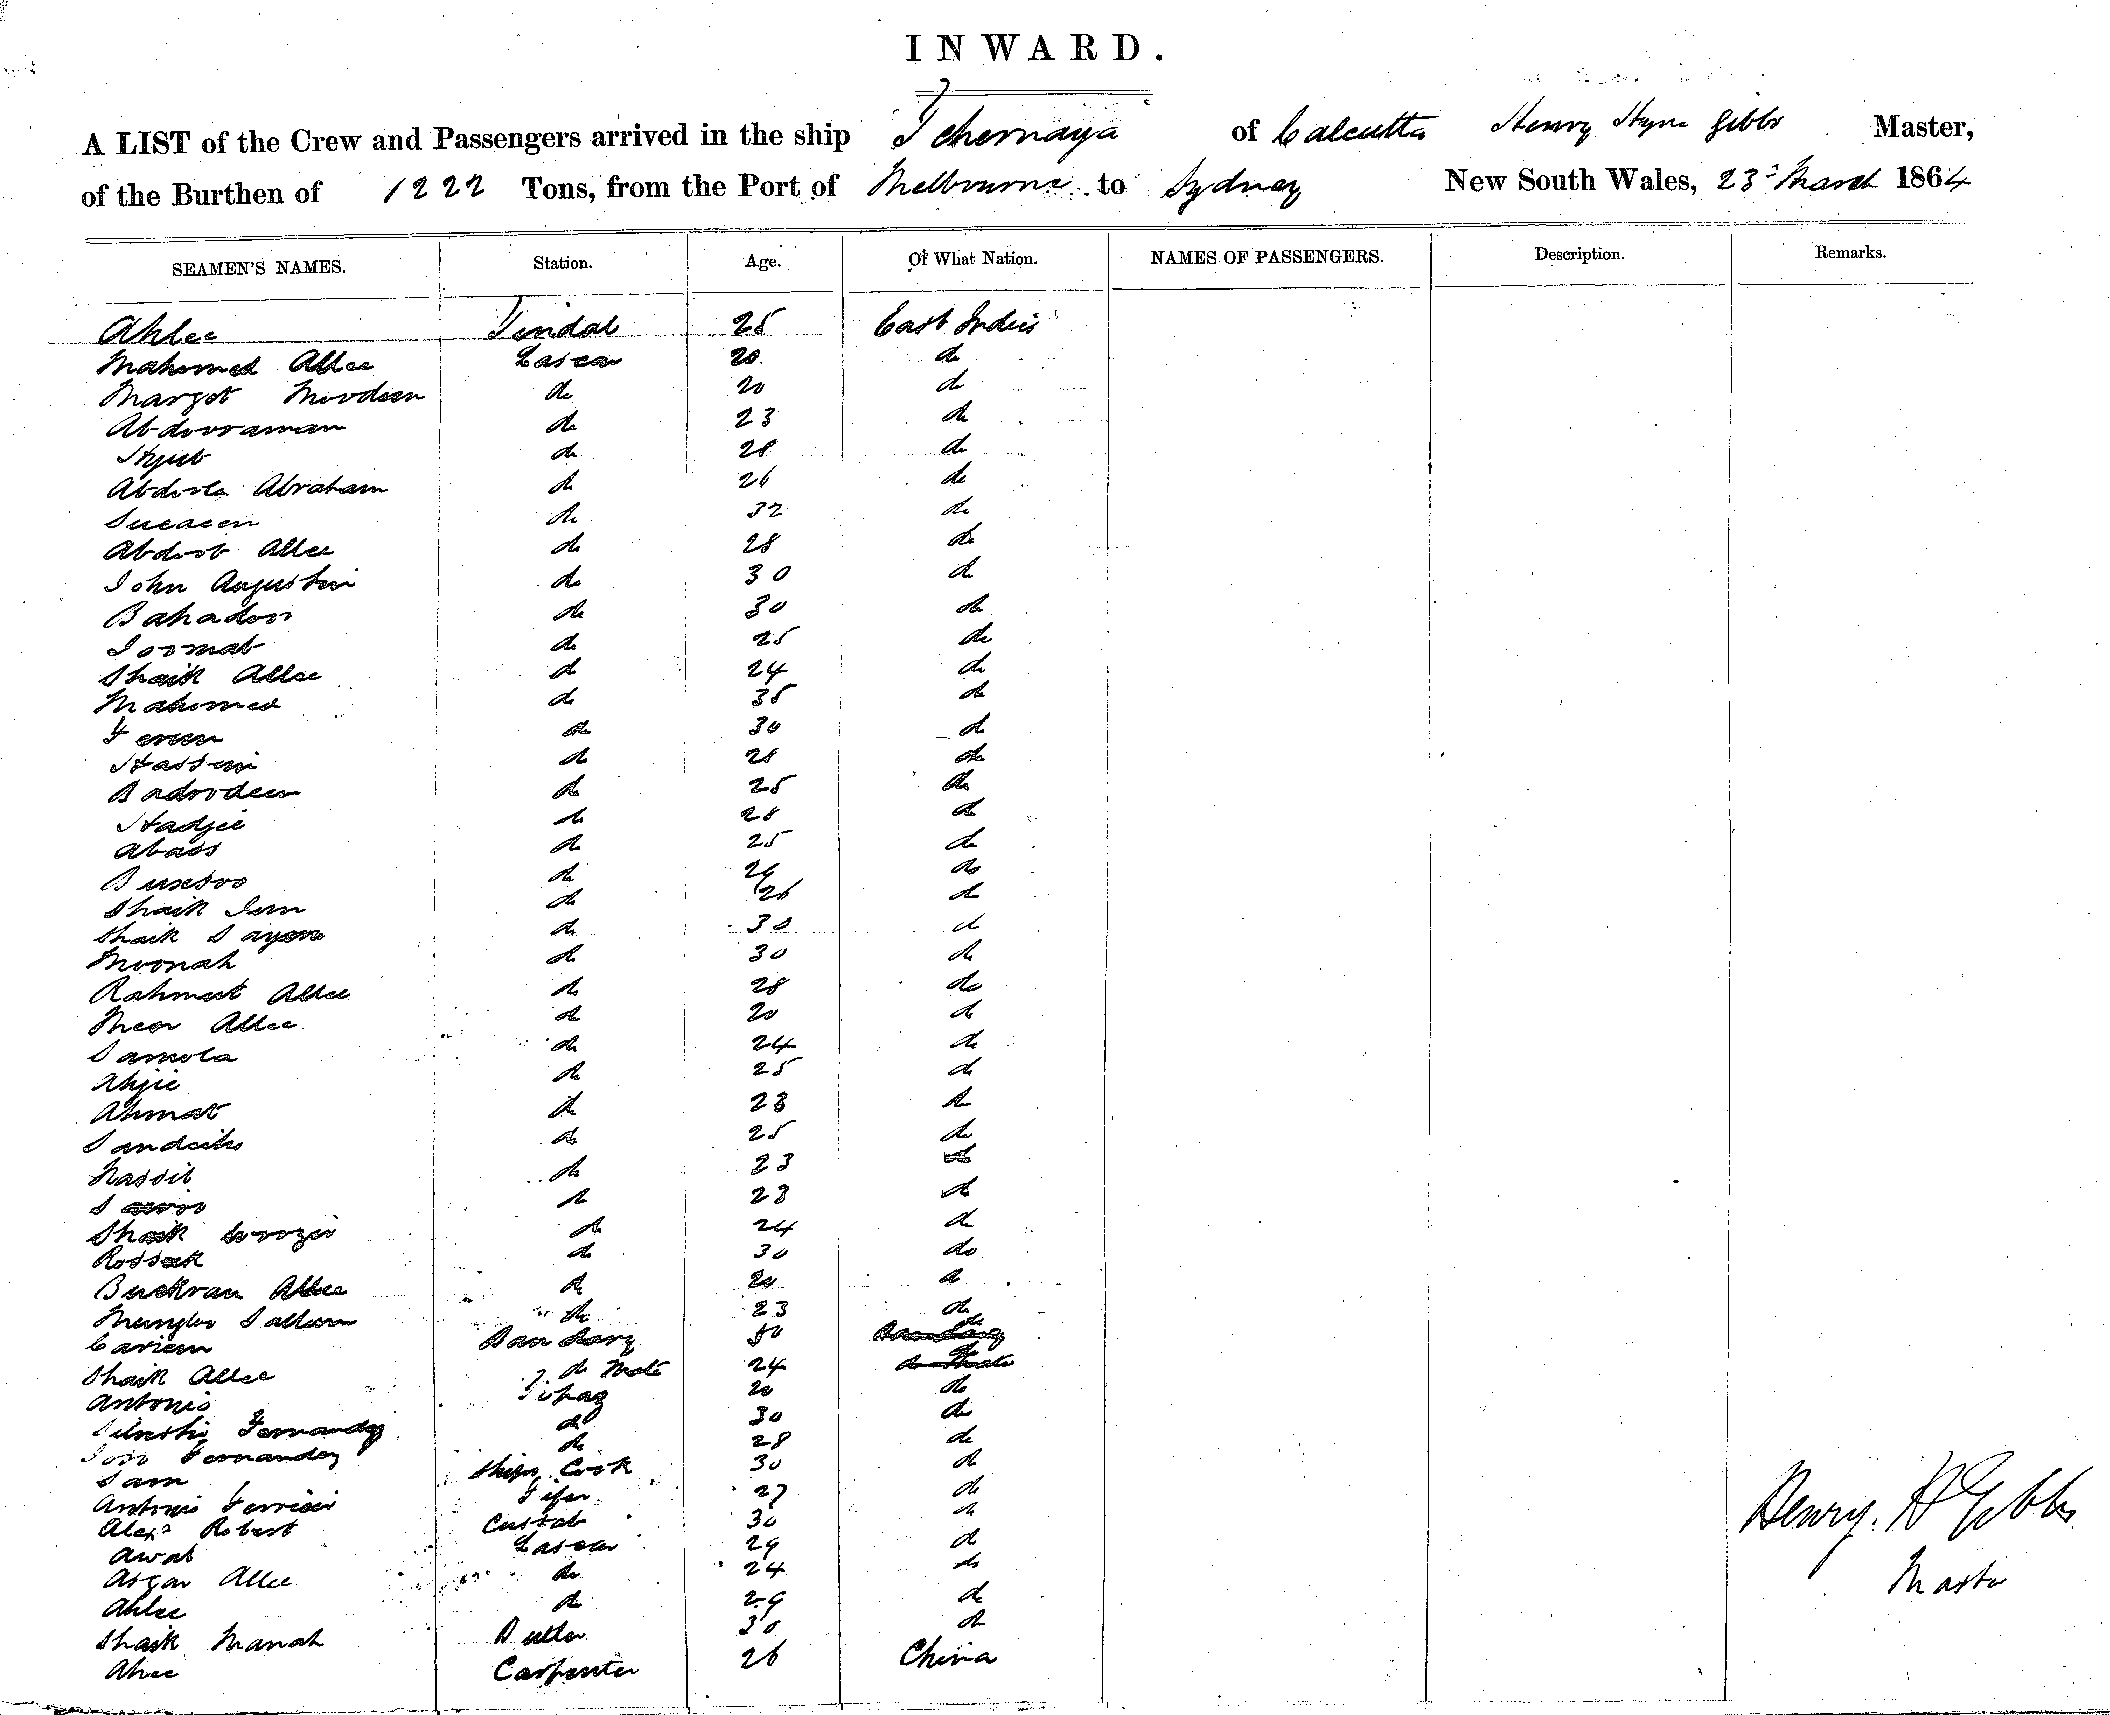 INWARD.
A LIST of the Crew and Passengers arrived in the ship Tchernaya of Calcutta Henry Hyne Gibbs Master,
of the Burthen of 1222 Tons, from the Port of Melbourne to Sydney New South Wales, 23d March 1864
SEAMEN'S NAMES. Station. Age. Of What Nation. NAMES OF PASSENGERS. Description. Remarks.
Ahlee Tindal 25 East Indies
Mahomed Allee Lascar 20 do
Margot Moodeen do 20 do
Abdooraman do 23 do
do 28 do
Abdola Abraham do 26 do
do 32 do
Abdool Allee do 28 do
John Augustin do 30 do
Bahadoor do 30 do
do 25 do
Shaik Allee do 24 do
Mahomed do 35 do
do 30 do
Hassim do 28 do
Badoodeen do 25 do
Hadjee do 28 do
Abass do 25 do
Buxsoo do 29 do
Shaik do 26 do
Shaik do 30 do
Moonah do 30 do
Rahmut Allee do 28 do
Meer Allee do 20 do
Samola do 24 do
Ahjie do 25 do
Ahmat do 23 do
do 25 do
Nassib do 23 do
do 23 do
Shaik do 24 do
Rossak do 30 do
Allee do 20 do
do 23 do
Cariem Bandary 50 do
Shaik Allee do Mate 24 do
Antonio Topaz 20 do
Fernandez do 30 do
Fernandez do 28 do
Sam Ships Cook 30 do
Antonio 27 do
Alexr Robert Cussab 30 do
Awat Lascar 29 do
Asgar Allee do 24 do
Ahlee do 29 do
Shaik Manah Butler 30 do
Ahee Carpenter 26 China
Henry. H Gibbs
Master